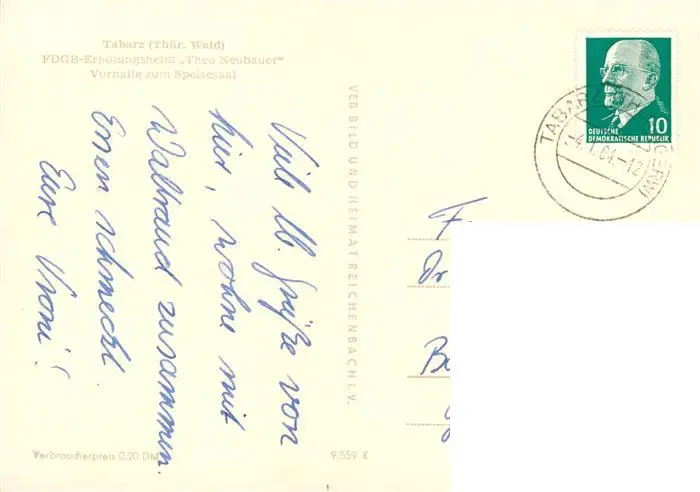 Tabarz (Thür. Wald)
FDGB-Erholungsheim „Theo Neubauer"
Vorhalle zum Speisesaal
Viele lb. Grüße von
hier, wohne mit
Waltraud zusammen.
Essen schmeckt
Eure Vroni!
VEB BILD UND HEIMAT REICHENBACH i. V.
Verbraucherpreis 0,20 DM
9/559 K
10
DEUTSCHE
DEMOKRATISCHE REPUBLIK
TABARZ
-4.1.64.-12
F
Dr
B